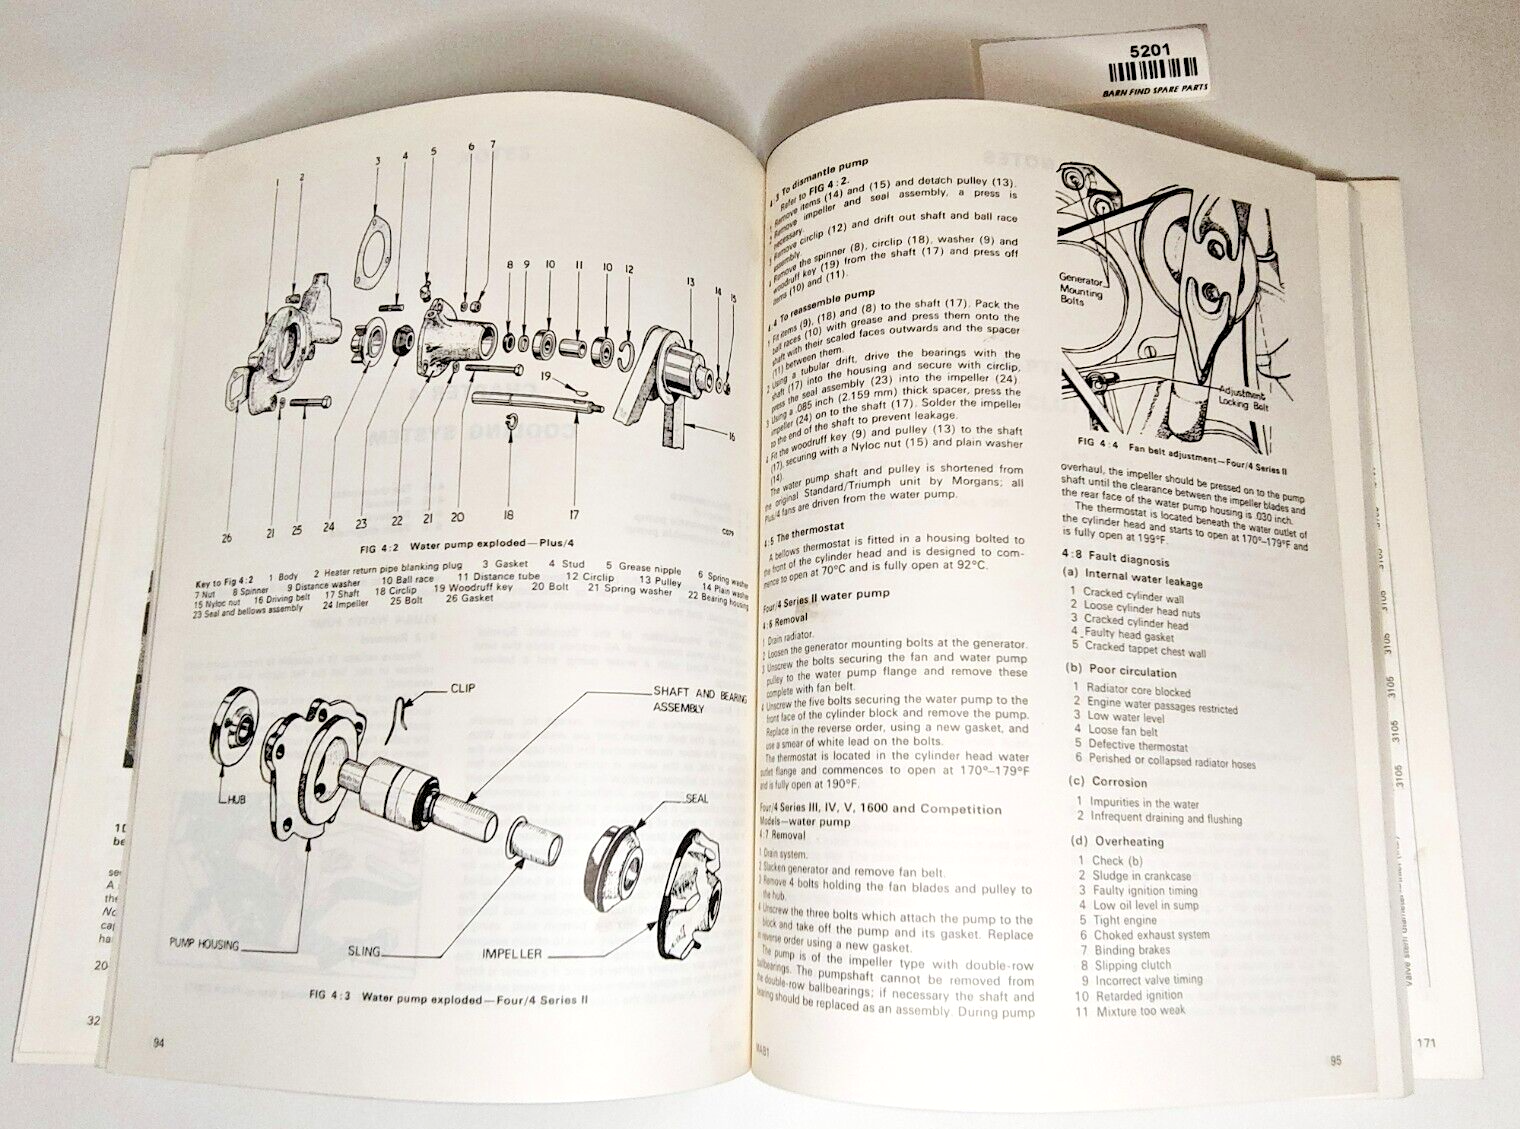 5201
BARN FIND SPARE PARTS
1
2
3
4
5
6
7
8
9
10
11
10
12
13
14
15
19
16
26
21
25
24
23
22
21
20
18
17
C679
FIG 4:2 Water pump exploded—Plus/4
Key to Fig 4:2 1 Body 2 Heater return pipe blanking plug 3 Gasket 4 Stud 5 Grease nipple 6 Spring washer
7 Nut 8 Spinner 9 Distance washer 10 Ball race 11 Distance tube 12 Circlip 13 Pulley 14 Plain washer
15 Nyloc nut 16 Driving belt 17 Shaft 18 Circlip 19 Woodruff key 20 Bolt 21 Spring washer 22 Bearing housing
23 Seal and bellows assembly 24 Impeller 25 Bolt 26 Gasket
CLIP
SHAFT AND BEARING
ASSEMBLY
HUB
SEAL
PUMP HOUSING
SLING
IMPELLER
FIG 4:3 Water pump exploded—Four/4 Series II
94
4:3 To dismantle pump
Refer to FIG 4:2.
1 Remove items (14) and (15) and detach pulley (13).
2 Remove impeller and seal assembly, a press is
necessary.
3 Remove circlip (12) and drift out shaft and ball race
assembly.
4 Remove the spinner (8), circlip (18), washer (9) and
woodruff key (19) from the shaft (17) and press off
items (10) and (11).
4:4 To reassemble pump
1 Fit items (9), (18) and (8) to the shaft (17). Pack the
ball races (10) with grease and press them onto the
shaft with their scaled faces outwards and the spacer
(11) between them.
2 Using a tubular drift, drive the bearings with the
shaft (17) into the housing and secure with circlip,
press the seal assembly (23) into the impeller (24).
3 Using a .085 inch (2.159 mm) thick spacer, press the
impeller (24) on to the shaft (17). Solder the impeller
to the end of the shaft to prevent leakage.
4 Fit the woodruff key (9) and pulley (13) to the shaft
(17), securing with a Nyloc nut (15) and plain washer
(14).
The water pump shaft and pulley is shortened from
the original Standard/Triumph unit by Morgans; all
Plus/4 fans are driven from the water pump.
4:5 The thermostat
A bellows thermostat is fitted in a housing bolted to
the front of the cylinder head and is designed to com-
mence to open at 70°C and is fully open at 92°C.
Four/4 Series II water pump
4:6 Removal
1 Drain radiator.
2 Loosen the generator mounting bolts at the generator.
3 Unscrew the bolts securing the fan and water pump
pulley to the water pump flange and remove these
complete with fan belt.
4 Unscrew the five bolts securing the water pump to the
front face of the cylinder block and remove the pump.
Replace in the reverse order, using a new gasket, and
use a smear of white lead on the bolts.
The thermostat is located in the cylinder head water
outlet flange and commences to open at 170°–179°F
and is fully open at 190°F.
Four/4 Series III, IV, V, 1600 and Competition
Models—water pump
4:7 Removal
1 Drain system.
2 Slacken generator and remove fan belt.
3 Remove 4 bolts holding the fan blades and pulley to
the hub.
4 Unscrew the three bolts which attach the pump to the
block and take off the pump and its gasket. Replace
in reverse order using a new gasket.
The pump is of the impeller type with double-row
ballbearings. The pumpshaft cannot be removed from
the double-row ballbearings; if necessary the shaft and
bearing should be replaced as an assembly. During pump
MAB1
Generator
Mounting
Bolts
Adjustment
Locking Bolt
FIG 4:4 Fan belt adjustment—Four/4 Series II
overhaul, the impeller should be pressed on to the pump
shaft until the clearance between the impeller blades and
the rear face of the water pump housing is .030 inch.
The thermostat is located beneath the water outlet of
the cylinder head and starts to open at 170°–179°F and
is fully open at 199°F.
4:8 Fault diagnosis
(a) Internal water leakage
1 Cracked cylinder wall
2 Loose cylinder head nuts
3 Cracked cylinder head
4 Faulty head gasket
5 Cracked tappet chest wall
(b) Poor circulation
1 Radiator core blocked
2 Engine water passages restricted
3 Low water level
4 Loose fan belt
5 Defective thermostat
6 Perished or collapsed radiator hoses
(c) Corrosion
1 Impurities in the water
2 Infrequent draining and flushing
(d) Overheating
1 Check (b)
2 Sludge in crankcase
3 Faulty ignition timing
4 Low oil level in sump
5 Tight engine
6 Choked exhaust system
7 Binding brakes
8 Slipping clutch
9 Incorrect valve timing
10 Retarded ignition
11 Mixture too weak
95
3105
3105
3105
3105
3105
171
20
32